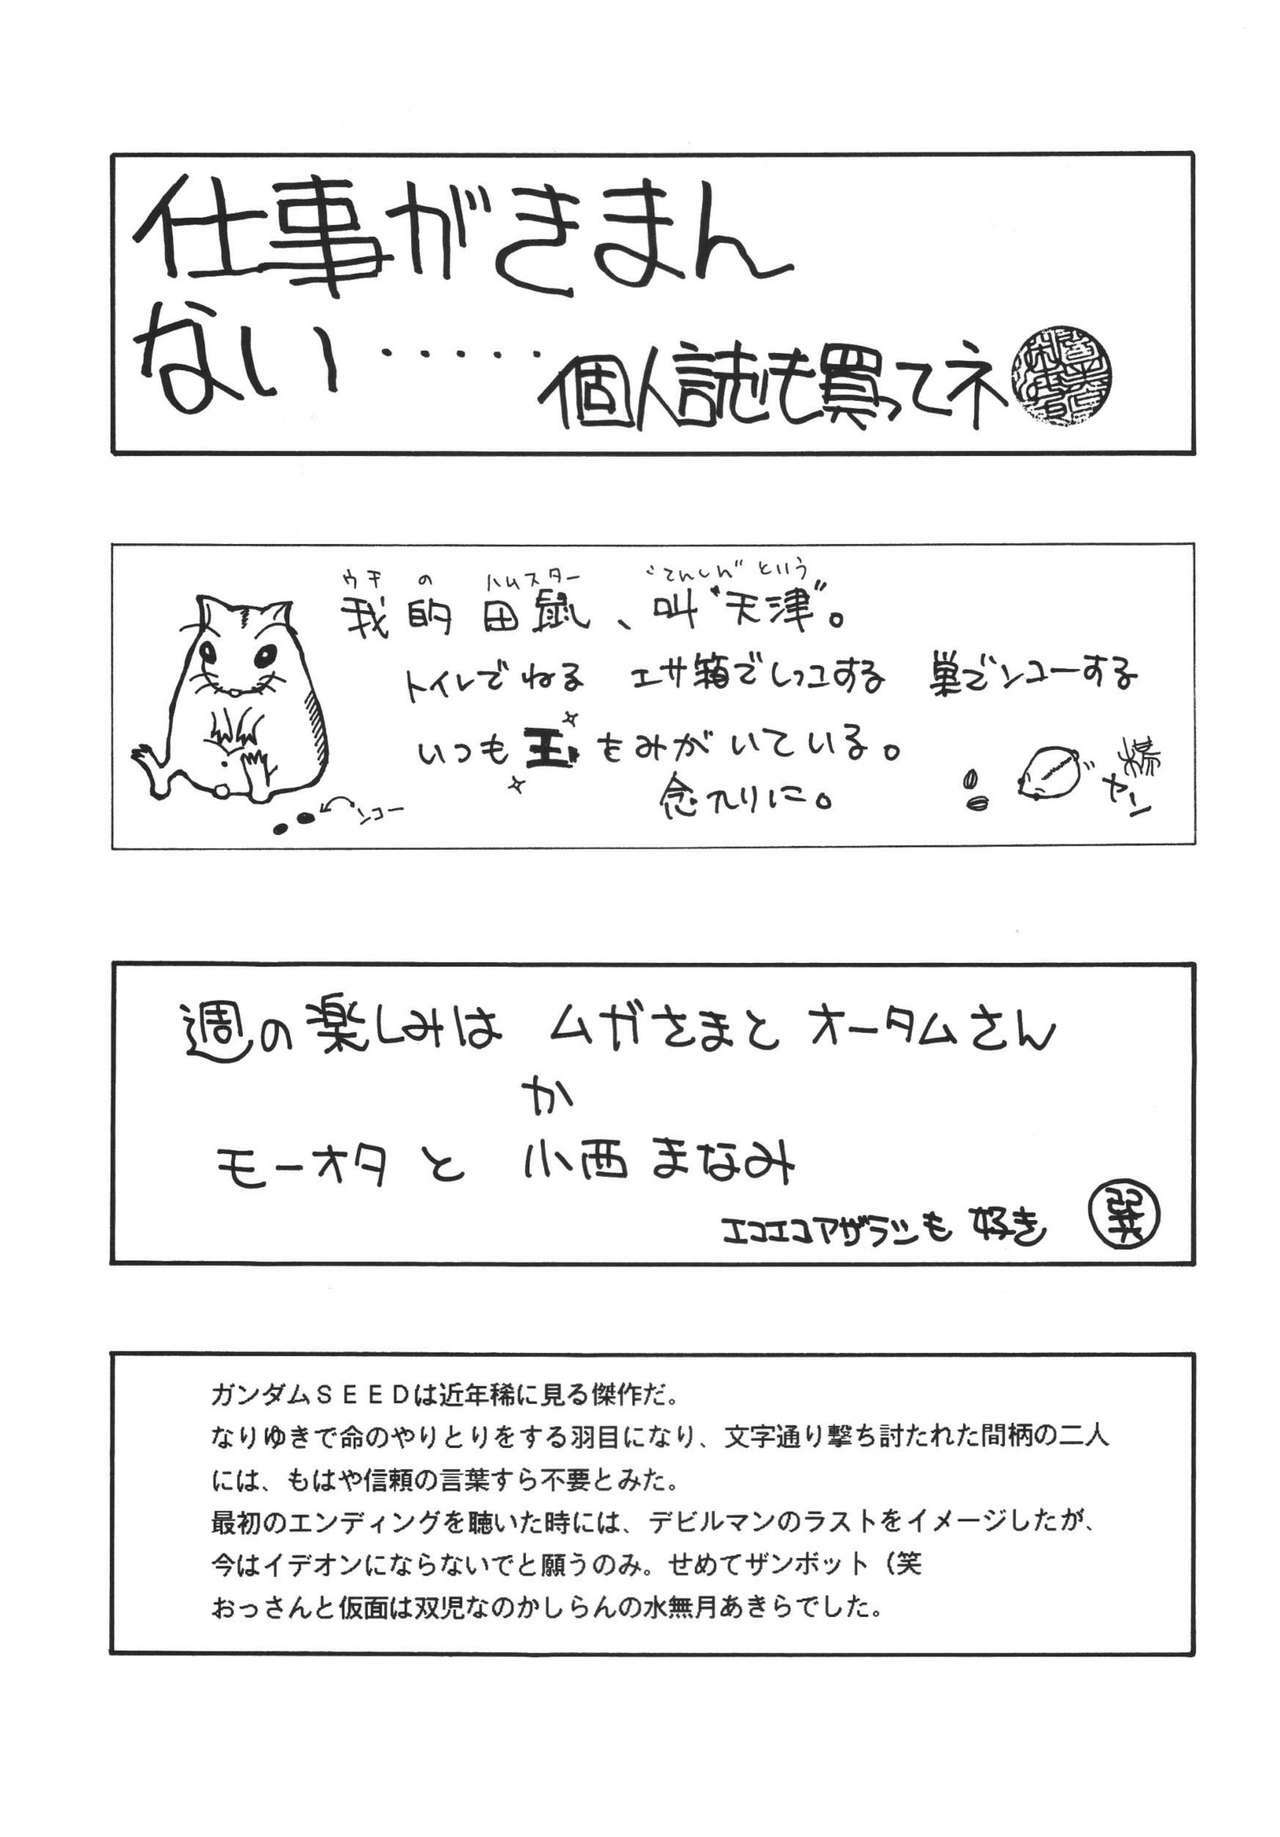 仕事がきまん
ない‥‥‥個人誌も買ってネ
ウチ の ハムスター “てんしん”という
我的田鼠、叫“天津”。
トイレでねる エサ箱でしっコする 巣でンコーする
いつも玉をみがいている。
念入りに。
ンコー
ヤン
週の楽しみは ムガさまと オータムさん
か
モーオタ と 小西 まなみ
エコエコアザラシも 好き
巽
ガンダムＳＥＥＤは近年稀に見る傑作だ。
なりゆきで命のやりとりをする羽目になり、文字通り撃ち討たれた間柄の二人
には、もはや信頼の言葉すら不要とみた。
最初のエンディングを聴いた時には、デビルマンのラストをイメージしたが、
今はイデオンにならないでと願うのみ。せめてザンボット（笑
おっさんと仮面は双児なのかしらんの水無月あきらでした。